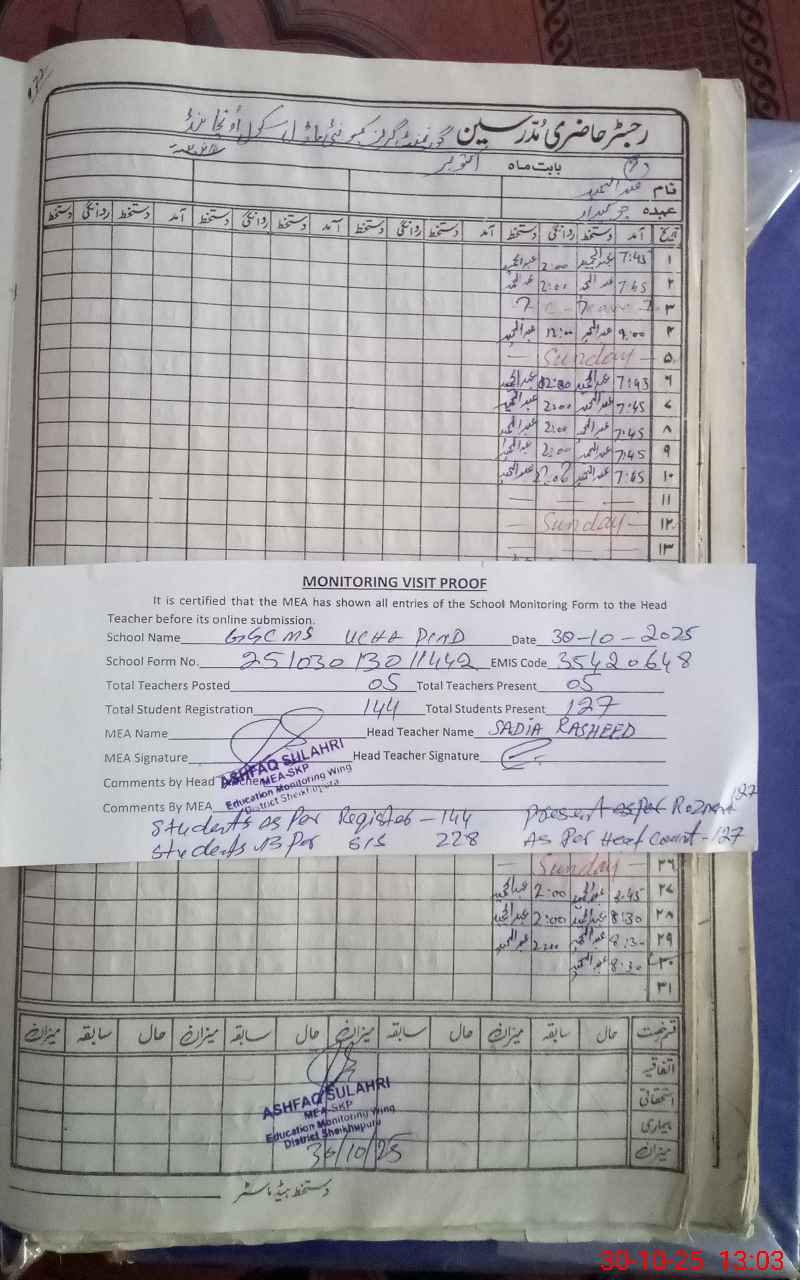 رجسٹر حاضری مدرسین گورنمنٹ گرلز کمیونٹی ماڈل سکول
بابت ماہ اکتوبر
نام عبدالحمید
عہدہ چوکیدار
تاریخ آمد دستخط روانگی دستخط آمد دستخط روانگی دستخط آمد دستخط روانگی دستخط آمد دستخط روانگی دستخط
۱ 7:45 عبدالحمید 2:00 عبدالحمید
۲ 7:45 عبدالحمید 2:00 عبدالحمید
۳
۴ 9:00 عبدالحمید 12:00 عبدالحمید
۵ Sunday
۶ 7:43 عبدالحمید عبدالحمید
۷ 7:45 عبدالحمید 2:00 عبدالحمید
۸ 7:45 عبدالحمید 2:00 عبدالحمید
۹ 7:45 عبدالحمید 2:00 عبدالحمید
۱۰ 7:45 عبدالحمید عبدالحمید
۱۱
۱۲ Sunday
۱۳
MONITORING VISIT PROOF
It is certified that the MEA has shown all entries of the School Monitoring Form to the Head
Teacher before its online submission.
School Name GGCMS UCHA PIND Date 30-10-2025
School Form No. 25103013011442 EMIS Code 35420648
Total Teachers Posted 05 Total Teachers Present 05
Total Student Registration 144 Total Students Present 127
MEA Name Head Teacher Name SADIA RASHEED
MEA Signature Head Teacher Signature
ASHFAQ SULAHRI
MEA-SKP
Education Monitoring Wing
District Sheikhupura
Comments by Head Teacher
Comments By MEA
Students as Per Register - 144 Present as Per 127
Students As Per SIS 228 As Per Head Count - 127
۲۶ Sunday
۲۷ عبدالحمید 2:00 عبدالحمید
۲۸ 8:30 عبدالحمید 2:00 عبدالحمید
۲۹ 8:30 عبدالحمید 2:00 عبدالحمید
۳۰ 8:30 عبدالحمید
۳۱
قسم رخصت حال سابقہ میزان حال سابقہ میزان حال سابقہ میزان حال سابقہ میزان
اتفاقیہ
استحقاقی
بیماری
میزان
ASHFAQ SULAHRI
MEA-SKP
Education Monitoring Wing
District Sheikhupura
30/10/25
دستخط ہیڈ ماسٹر
30-10-25 13:03